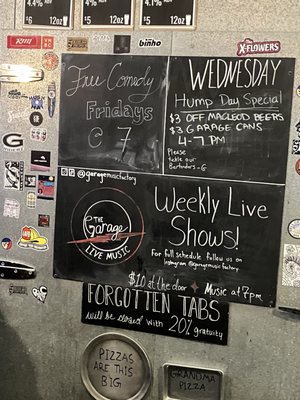 4.4%
4.9%
4.1%
ABV
$5 12oz
$5 12oz
$6 12oz
binho
X-FLOWERS
Free Comedy
Fridays
@ 7
WEDNESDAY
Hump Day Special
$3 OFF MACLEOD BEERS
$3 GARAGE CANS
4-7 PM
Please
tickle our
Bartenders -G
@garagemusicfactory
THE
Garage
LIVE MUSIC
Weekly Live
Shows!
For full schedule follow us on
Instagram @garagemusicfactory
$10 at the door
Music at 7pm
FORGOTTEN TABS
will be closed with 20% gratuity
PIZZAS
ARE THIS
BIG
GRANDMA
PIZZA